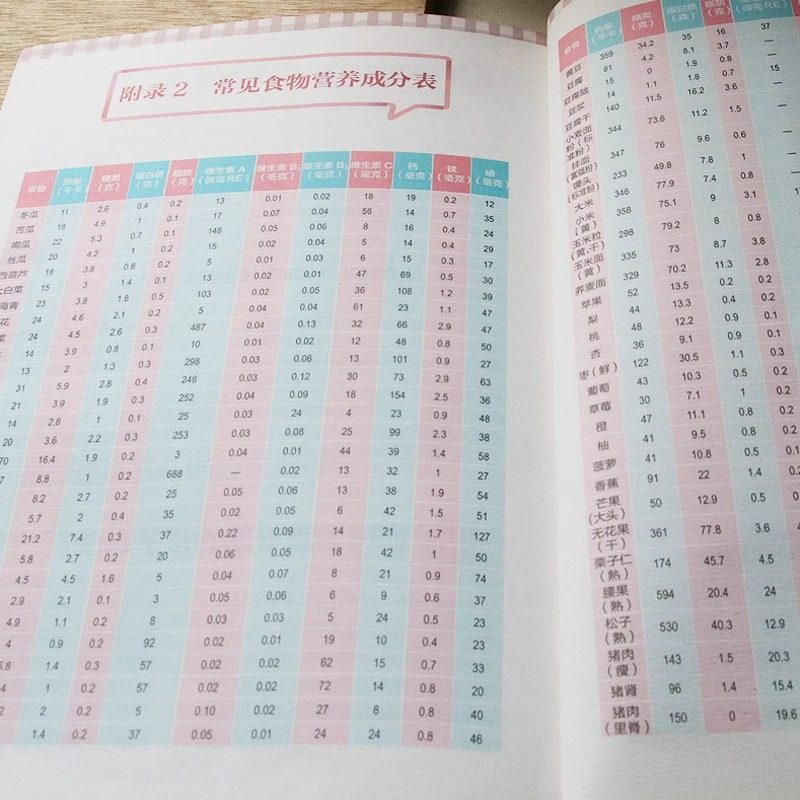 附录 2 常见食物营养成分表
食物 热量（千卡） 糖类（克） 蛋白质（克） 脂肪（克） 维生素 A（微克 RE） 维生素 B₁（毫克） 维生素 B₂（毫克） 维生素 C（毫克） 钙（毫克） 铁（毫克） 磷（毫克）
冬瓜 11 2.6 0.4 0.2 13 0.01 0.02 18 19 0.2 12
苦瓜 19 4.9 1 0.1 17 0.07 0.04 56 14 0.7 35
南瓜 22 5.3 0.7 0.1 148 0.05 0.06 8 16 0.4 24
丝瓜 20 4.2 1 0.2 15 0.02 0.04 5 14 0.4 29
西葫芦 18 3.8 0.8 0.2 5 0.01 0.03 6 15 0.3 17
大白菜 15 3 1.4 0.1 13 0.02 0.01 47 69 0.5 30
海青 23 3.8 1.8 0.5 103 0.02 0.05 36 108 1.2 39
花 24 4.6 2.1 0.2 5 0.04 0.04 61 23 1.1 47
菜 24 4.5 2.6 0.3 487 0.04 0.13 32 66 2.9 47
14 3.9 0.8 0.1 10 0.01 0.02 12 48 0.8 50
13 2 1.3 0.3 298 0.03 0.06 13 101 0.9 27
31 5.9 2.8 0.4 248 0.03 0.12 30 73 2.9 63
21 3.9 1.9 0.3 252 0.04 0.09 18 154 2.5 36
14 2.8 1 0.1 25 0.03 24 4 23 0.9 48
20 3.6 2.2 0.3 253 0.03 0.08 25 99 2.3 38
70 16.4 1.9 0.2 3 0.04 0.01 44 39 1.4 58
7 8.8 1 0.2 688 — 0.02 13 32 1 27
8.2 2.7 0.2 25 0.05 0.06 13 38 1.9 54
5.7 2 0.4 35 0.02 0.05 6 42 1.5 51
21.2 7.4 0.3 37 0.22 0.09 14 21 1.7 127
5.8 2.7 0.2 20 0.06 0.05 18 42 1 50
4.5 4.5 1.6 5 0.04 0.07 8 21 0.9 74
2.9 2.1 0.1 3 0.05 0.06 6 9 0.6 37
4.9 1.1 0.2 8 0.03 0.03 5 24 0.5 23
4 0.9 0.2 92 0.02 0.01 19 10 0.4 23
5.8 1.4 0.3 57 0.02 0.02 62 15 0.7 33
4 1 0.2 57 0.02 0.02 72 14 0.8 20
2 0.2 5 0.10 0.02 27 8 0.8 40
1.4 0.2 37 0.05 0.01 24 24 0.8 46
食物 热量（千卡） 糖类（克） 蛋白质（克） 脂肪（克） （微克 RE）
黄豆 359 34.2 35 16 37
豆腐 81 4.2 8.1 3.7 —
豆腐脑 15 0 1.9 0.8 —
豆浆 14 1.1 1.8 0.7 15
豆腐干 140 11.5 16.2 3.6 —
小麦面粉（标准粉） 344 73.6 11.2 1.5 —
挂面（富强粉） 347 76 9.6 0.6 —
馒头（标准粉） 233 49.8 7.8 1 —
大米 346 77.9 7.4 0.8
小米（黄） 358 75.1 9 3.1
玉米粒（黄,干） 298 79.2 8 0.8
玉米面（黄） 335 73 8.7 3.8
荞麦面 329 70.2 11.3 2.8
苹果 52 13.5 0.2 0.2
梨 44 13.3 0.4 0.2
桃 48 12.2 0.9 0.1
杏 36 9.1 0.9 0.1
枣（鲜） 122 30.5 1.1 0.3
葡萄 43 10.3 0.5 0.2
草莓 30 7.1 1 0.2
橙 47 11.1 0.8 0.2
柚 41 9.5 0.8 0.2
菠萝 41 10.8 0.5 0.1
香蕉 91 22 1.4 0.2
芒果（大头） 50 12.9 0.5 0
无花果（干） 361 77.8 3.6 4
栗子仁（熟） 174 45.7 4.5
腰果（熟） 594 20.4 24
松子（熟） 530 40.3 12.9
猪肉（瘦） 143 1.5 20.3
猪肾 96 1.4 15.4
猪肉（里脊） 150 0 19.6